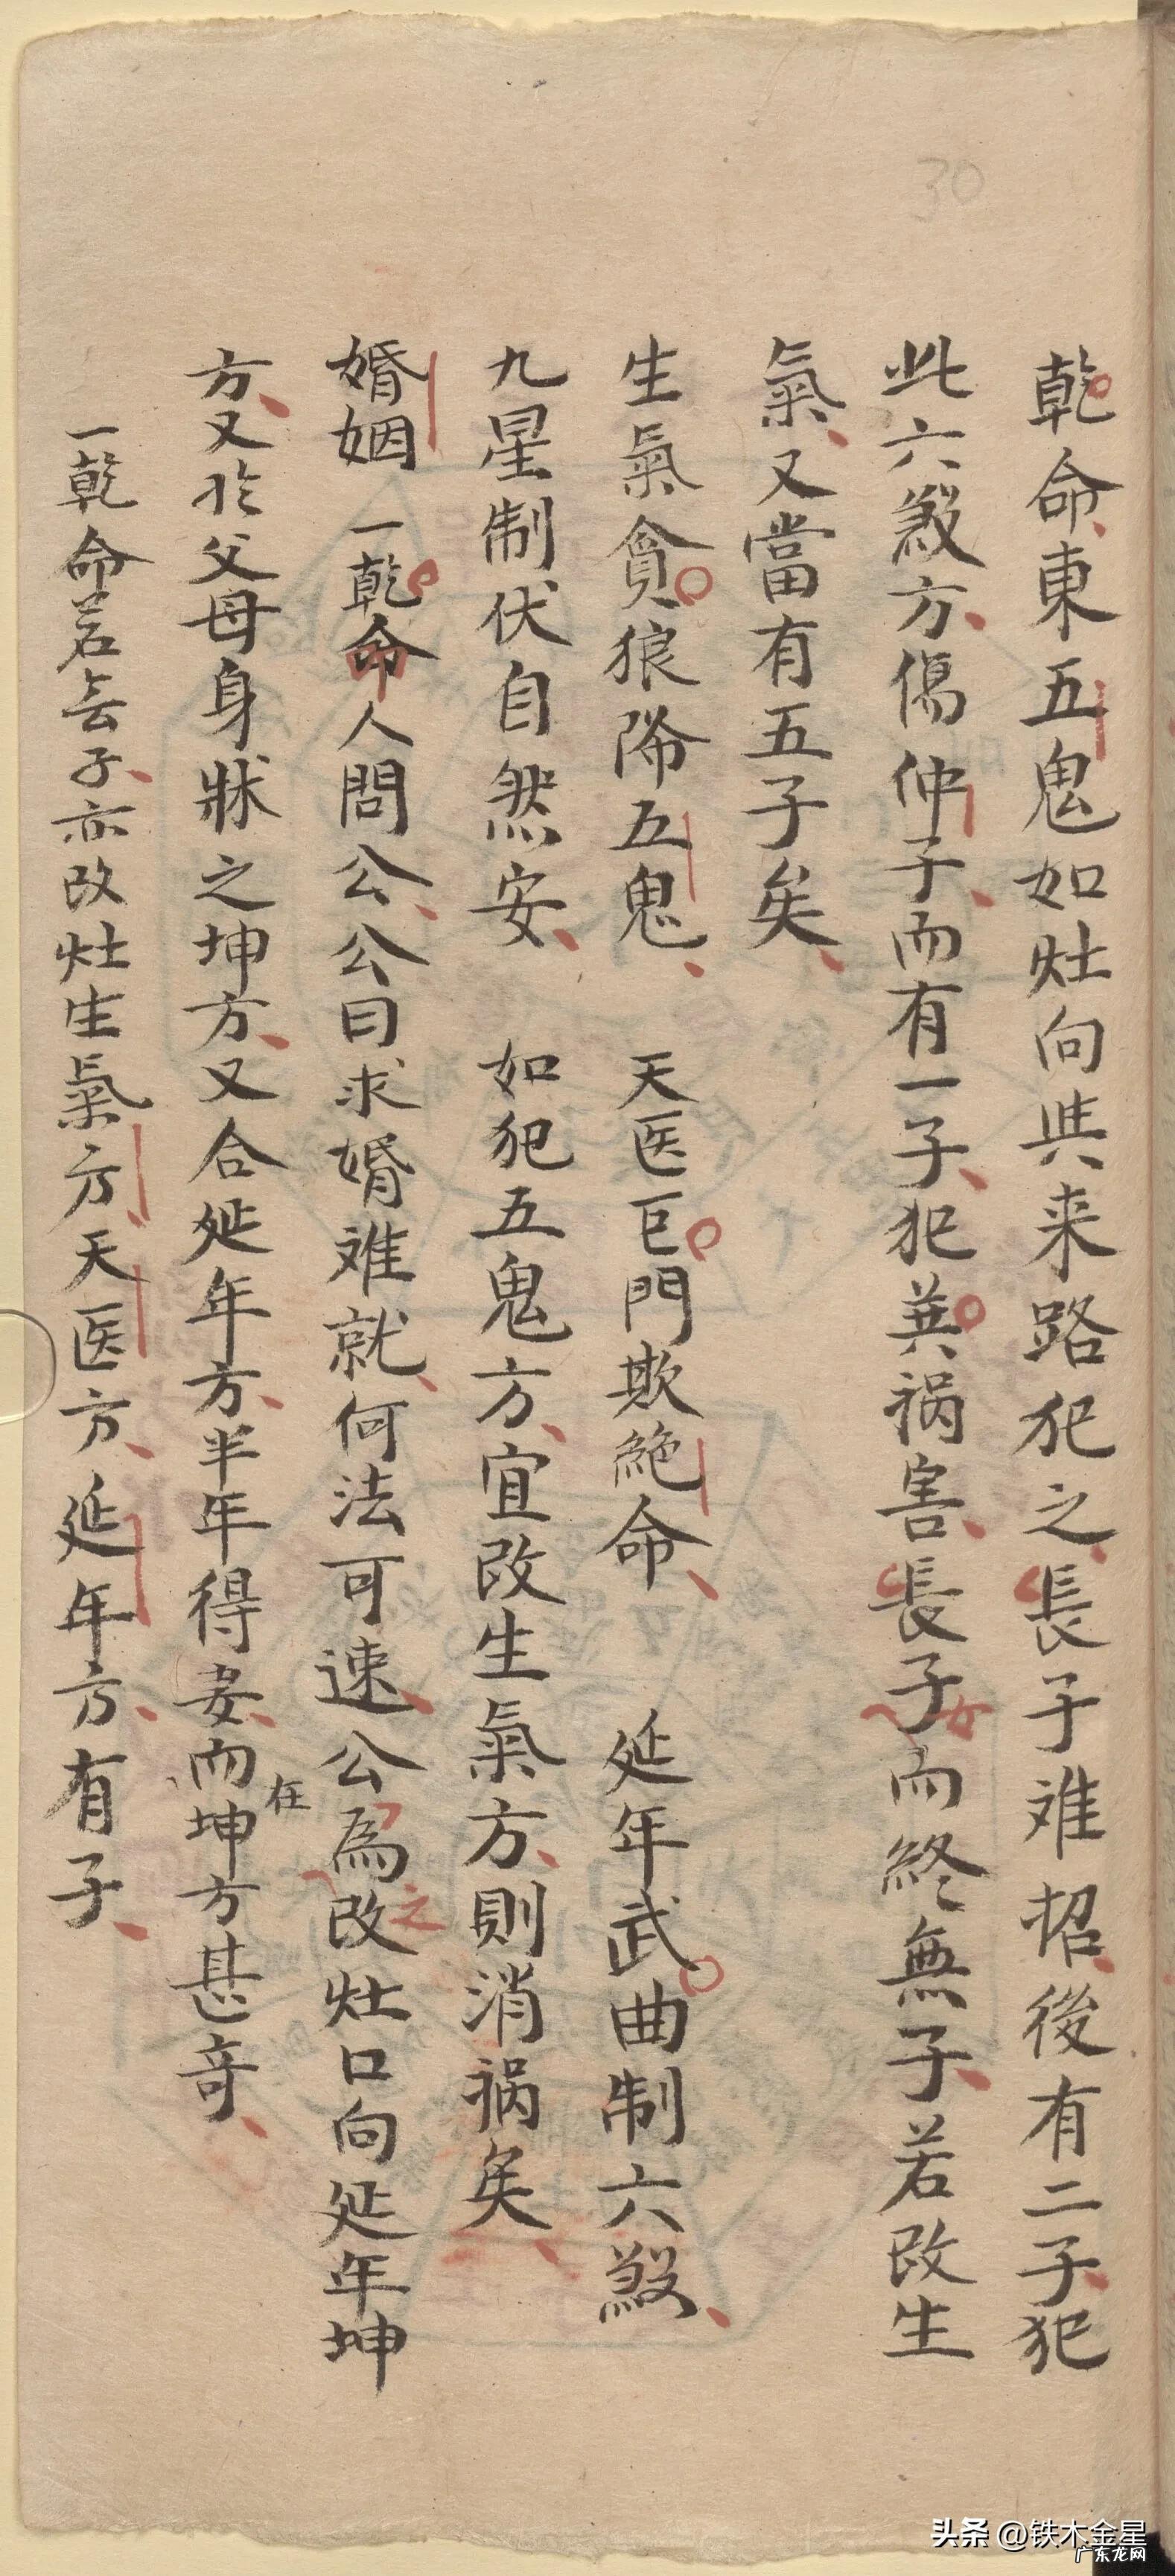 30
乾命東五鬼如灶向與来路犯之長子难招後有二子犯
此六煞方傷仲子而有一子犯其祸害長子女而終無子若改生
氣又當有五子矣
生氣貪狼降五鬼 天医巨門欺絶命 延年武曲制六煞
九星制伏自然安 如犯五鬼方宜改生氣方則消祸矣
婚姻 一乾命人問公公曰求婚难就何法可速公為之改灶口向延年坤
方又於父母身牀之坤方又合延年方半年得妻而在坤方甚奇
一乾命若去子亦改灶生氣方天医方延年方有子
头条 @铁木金星
广东龙网